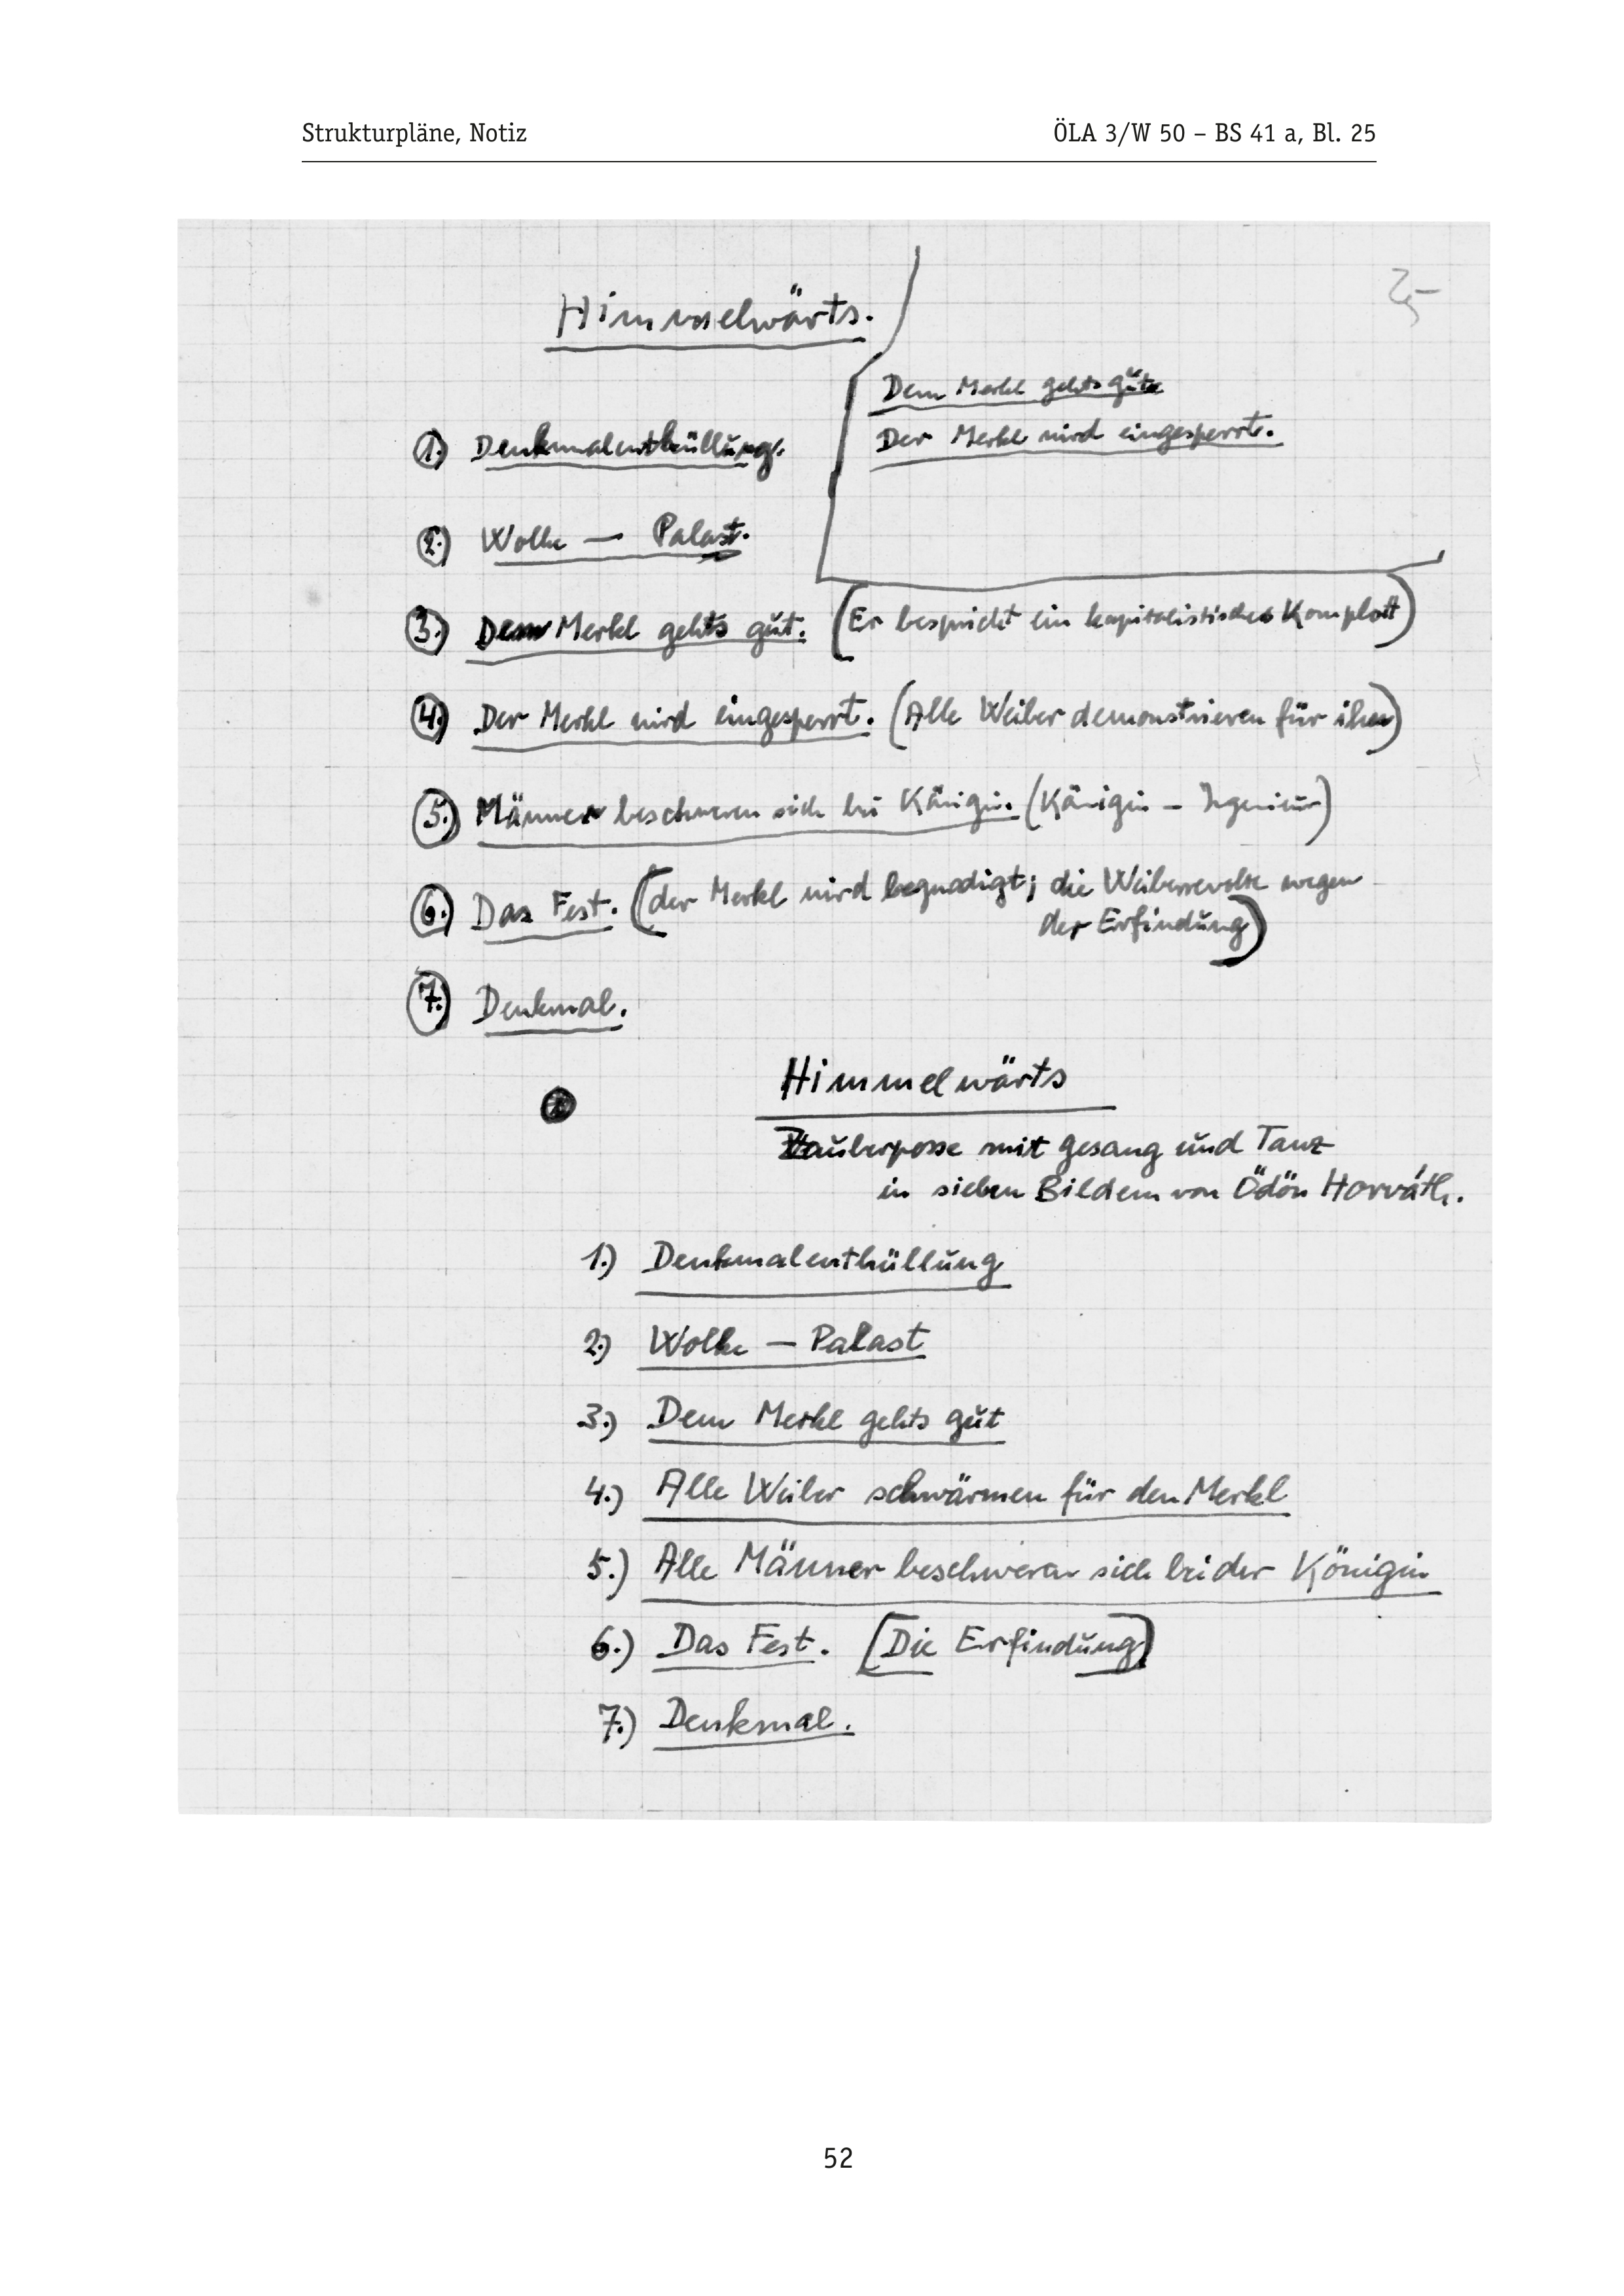 Strukturpläne, Notiz
ÖLA 3/W 50 – BS 41 a, Bl. 25
25
Himmelwärts.
Dem Merkl gehts gut
Der Merkl wird eingesperrt.
1.) Denkmalenthüllung.
2.) Wolke — Palast.
3.) Dem Merkl gehts gut. (Er bespricht ein kapitalistisches Komplott)
4.) Der Merkl wird eingesperrt. (Alle Weiber demonstrieren für ihn)
5.) Männer beschweren sich bei Königin. (Königin – Ingenieur)
6.) Das Fest. (der Merkl wird begnadigt; die Weiberrevolte wegen
der Erfindung)
7.) Denkmal.
Himmelwärts
Zauberposse mit Gesang und Tanz
in sieben Bildern von Ödön Horváth.
1.) Denkmalenthüllung
2.) Wolke — Palast
3.) Dem Merkl gehts gut
4.) Alle Weiber schwärmen für den Merkl
5.) Alle Männer beschweren sich bei der Königin
6.) Das Fest. (Die Erfindung)
7.) Denkmal.
52